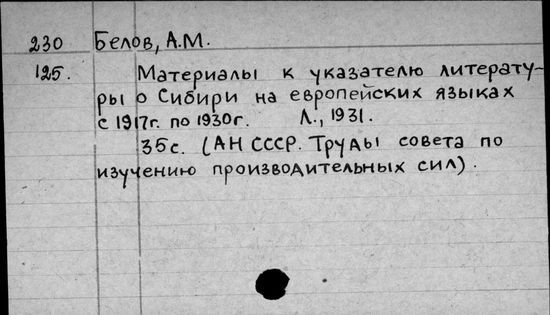 230 Белов, А.М.
125. Материалы к указателю литерату-
ры о Сибири на европейских языках
с 1917г. по 1930г. Л., 1931.
35с. (АН СССР. Труды совета по
изучению производительных сил).